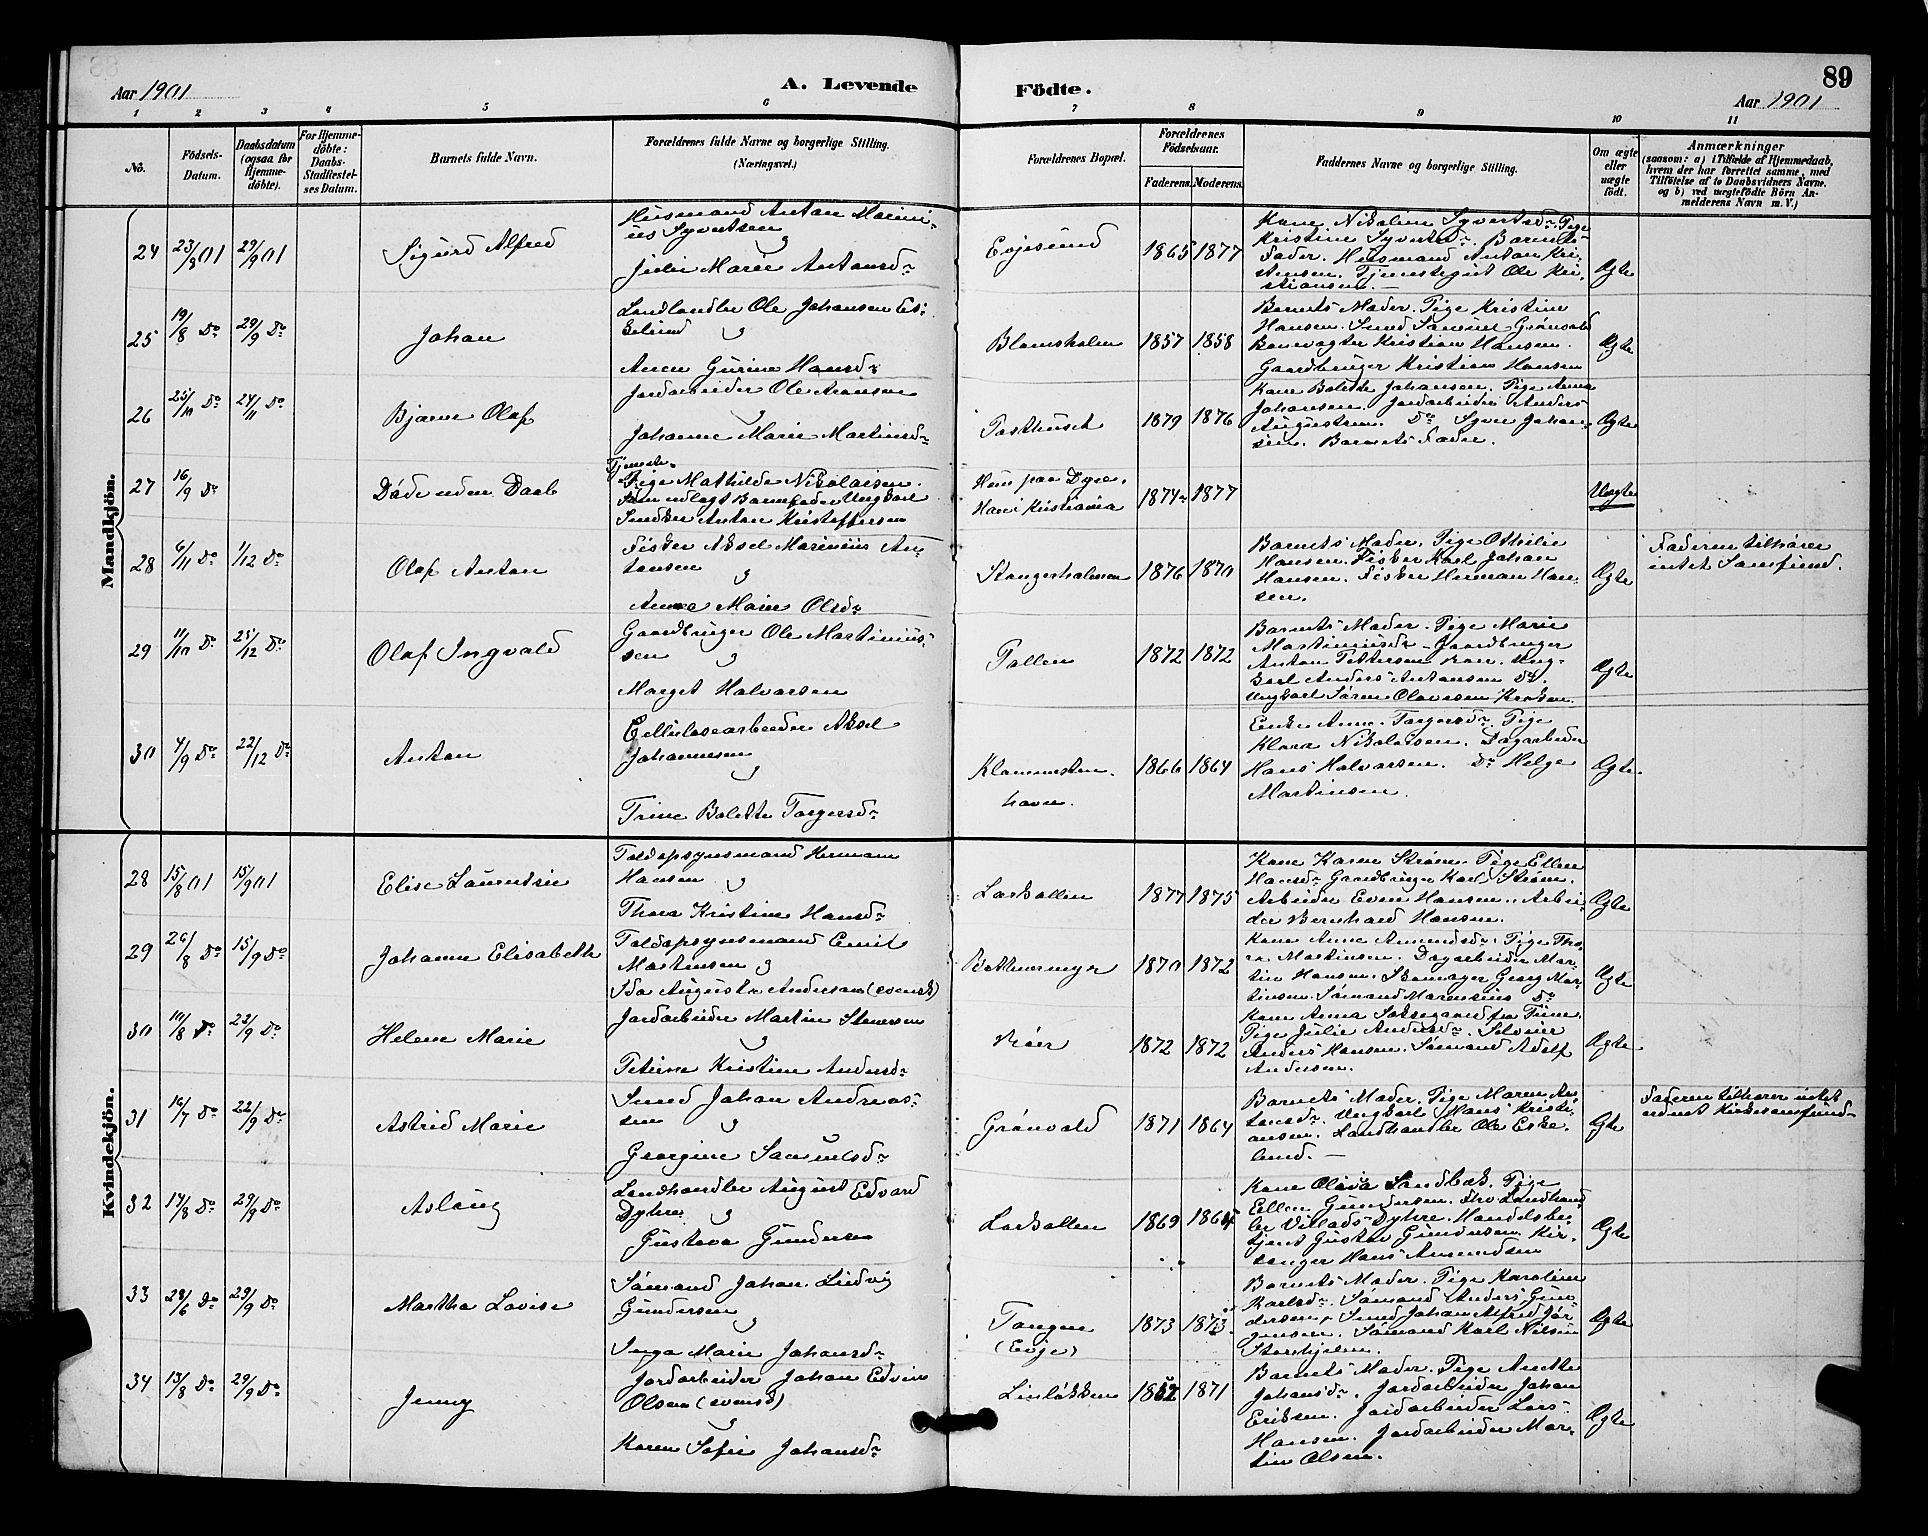 89
Aar 1901
A. Levende
Födte.
Aar 1901
1 2 3 4 5 6 7 8 9 10 11
No.
Födsels-Datum.
Daabsdatum (ogsaa for Hjemme-döbte).
For Hjemme-döbte: Daabs-Stadfæstelses Datum.
Barnets fulde Navn.
Forældrenes fulde Navne og borgerlige Stilling. (Næringsvei.)
Forældrenes Bopæl.
Forældrenes Födselsaar.
Faderens. Moderens.
Faddernes Navne og borgerlige Stilling.
Om ægte eller uægte født.
Anmærkninger
(saasom: a) i Tilfælde af Hjemmedaab,
hvem der har forrettet samme, med
Tilföielse af to Daabsvidners Navne.
og b) ved uægtefödte Börn An-
melderens Navn m. V.)
Mandkjön.
24 23/8 01 29/9 01
Sigurd Alfred
Husmand Anton Marini-
us Syvertsen
Julie Marie Antonsd.
Evjesund
1865 1877
Kone Nikoline Syvertsd. Pige
Kristine Syvertsd. Barnets
Fader. Husmand Anton Kri-
stensen. Tjenestegut Ole Kri-
stiansen.
Ægte
25 19/8 Do 29/9 Do
Johan
Landhandler Ole Johansen Es-
kelund
Anen Gurine Hansd.
Blomsholm
1857 1858
Barnets Moder. Pige Kristine
Hansen. Smed Samuel Grönvold
Banevogter Kristian Hansen.
Gaardbruger Kristian Hansen
Ægte
26 25/10 Do 24/11 Do
Bjarne Olaf
Jordarbeider Ole Aronsen
Johanne Marie Martinsd.
Posthuset
1879 1876
Kone Bolette Johansen. Pige Anna
Johansen. Jordarbeider Anders
Augustsen. Do Syver Johan-
sen. Barnets Fader.
Ægte
27 16/9 Do
Döde uden Daab
Tjeneste-
Pige Mathilde Nikolaisen.
Som udlagt Barnefader Ungkarl
Snedker Anton Kristoffersen
Hun paa Dyre.
Han i Kristiania
1874 1877
Uægte
28 6/11 Do 1/12 Do
Olaf Anton
Fisker Aksel Marinius An-
tonsen
Anna Marie Olsd.
Stangerholmen
1876 1870
Barnets Moder. Pige Othilie
Hansen. Fisker Karl Johan
Hansen. Fisker Herman Han-
sen.
Ægte
Faderen tilhører
intet Samfund.
29 11/10 Do 25/12 Do
Olaf Ingvald
Gaardbruger Ole Martinius-
sen
Marget Halvorsen
Pollen
1872 1872
Barnets Moder. Pige Marie
Martiniusd. Gaardbruger
Anton Pettersen Roer. Ung-
karl Anders Antonsen Do.
Ungkarl Sören Olavesen Kroken
Ægte
30 4/9 Do 22/12 Do
Anton
Cellulosearbeider Aksel
Johannesen
Trine Bolette Torgersd.
Klommesten
havn.
1866 1864
Enke Anne Torgersd. Pige
Klara Nikolaisen. Dagarbeider
Hans Halvorsen. Do Helge
Martinsen.
Ægte
Kvindekjön.
28 15/8 01 15/9 01
Elise Laurentsie
Toldopsynsmand Hermann
Hansen
Thora Kristine Hansd.
Larkollen
1877 1875
Kone Karen Ström. Pige Ellen
Hansd. Gaardbruger Karl Ström.
Arbeider Even Hansen. Arbei-
der Bernhard Hansen.
Ægte
29 26/8 Do 15/9 Do
Johanne Elisabeth
Toldopsynsmand Emil
Martinsen
Ida Augusta Anderson (svensk)
1870 1872
Kone Anne Amundsd. Pige Tho-
ra Martinsen. Dagarbeider Mar-
tin Hansen. Skomager Georg Mar-
tinsen. Sömand Marensius Do
Ægte
30 10/8 Do 22/9 Do
Helene Marie
Jordarbeider Martin Stenersen
Petrine Kristine Andersd.
Röer
1872 1872
Kone Anna
Pige Julie Andersd. Selveier
Anders Hansen. Sömand Adolf
Andersen.
Ægte
31 16/7 Do 22/9 Do
Astrid Marie
Smed Johan Andreas-
sen
Georgine Samuelsd.
Grönvold
1871 1864
Barnets Moder. Pige Maren An-
tonsd. Ungkarl Hans Kristi-
ansen. Landhandler Ole Eske-
lund.
Ægte
Faderen tilhører intet
ordnet Kirkesamfund
32 14/8 Do 29/9 Do
Aslaug
Landhandler August Edvard
Dyhre
Gustava Gundersen
Larkollen
1869 1864
Kone Olava Sandbæk. Pige
Ellen Gundersen. Hr. Landhand-
ler Villads Dyhre. Handelsbe-
tjent Gustav Gundersen. Kir-
sanger Hans Amundsen
Ægte
33 28/6 Do 29/9 Do
Martha Lovise
Sömand Johan Ludvig
Gundersen
Inga Marie Johansd.
Tangen
(Evje)
1873 1873
Barnets Moder. Pige Karoline
Karlsd. Sömand Anders Gun-
dersen. Smed Johan Alfred Jör-
gensen. Sömand Karl Nilsen
Storhjelm.
Ægte
34 13/8 Do 29/9 Do
Jenny
Jordarbeider Johan Edvin
Olsen (svensk)
Karen Sofie Johansd.
Linlökken
1871
Barnets Moder. Pige Anette
Johansd. Jordarbeider Johan
Eriksen. Jordarbeider Lars
Hansen. Jordarbeider Mar-
tin Olsen.
Ægte